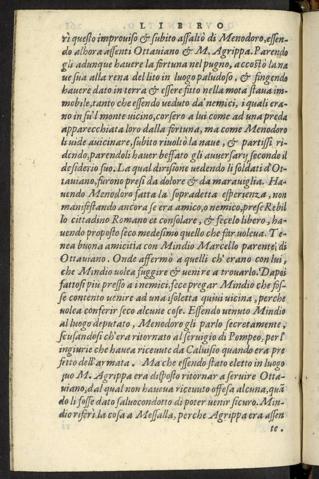 LIBRO
rì questo improuiso & subito assaltò di Menodoro, essen-
do alhora assenti Ottauiano & M. Agrippa. Parendo
gli adunque hauere la fortuna nel pugno, accostò la na
ue sua alla rena del lito in luogo paludoso, & fingendo
hauere dato in terra & essere fitto nella mota staua im-
mobile, tanto che essendo ueduto da' nemici, i quali era-
no in su'l monte uicino, corsero a lui come ad una preda
apparecchiata loro dalla fortuna, ma come Menodoro
li uide auicinare, subito riuoltò la naue, & partissi ri-
dendo, parendoli hauer beffato gli auuersary secondo il
desiderio suo. La qual dirisione uedendo li soldati d'Ot-
tauiano, furono presi da dolore & da marauiglia. Ha-
uendo Menodoro fatta la sopradetta esperienza, non
manifestando ancora se era amico, o nemico, prese Rebil
lo cittadino Romano et consolare, & fecelo libero, ha-
uendo proposto seco medesimo quello che far uoleua. Te-
nea buona amicitia con Mindio Marcello parente di
Ottauiano. Onde affermò a quelli ch'erano con lui,
che Mindio uolea fuggire & uenire a trouarlo. Dapoi
fattosi più presso a i nemici, fece pregar Mindio che fos-
se contento uenire ad una isoletta quiui uicina, perche
uolea conferir seco alcune cose. Essendo uenuto Mindio
al luogo deputato, Menodoro gli parlo secretamente,
scusandosi ch'era ritornato al seruigio di Pompeo, per l'
ingiurie che hauea riceuute da Caluisio quando era pre
fetto dell'armata. Ma che essendo stato eletto in luogo
suo M. Agrippa era disposto ritornar a seruire Otta-
uiano, dal qual non haueua riceuuto offesa alcuna, quā
do li fosse dato saluocondotto di poter uenir sicuro. Min-
dio riferì la cosa a Messalla, perche Agrippa era assen
te.